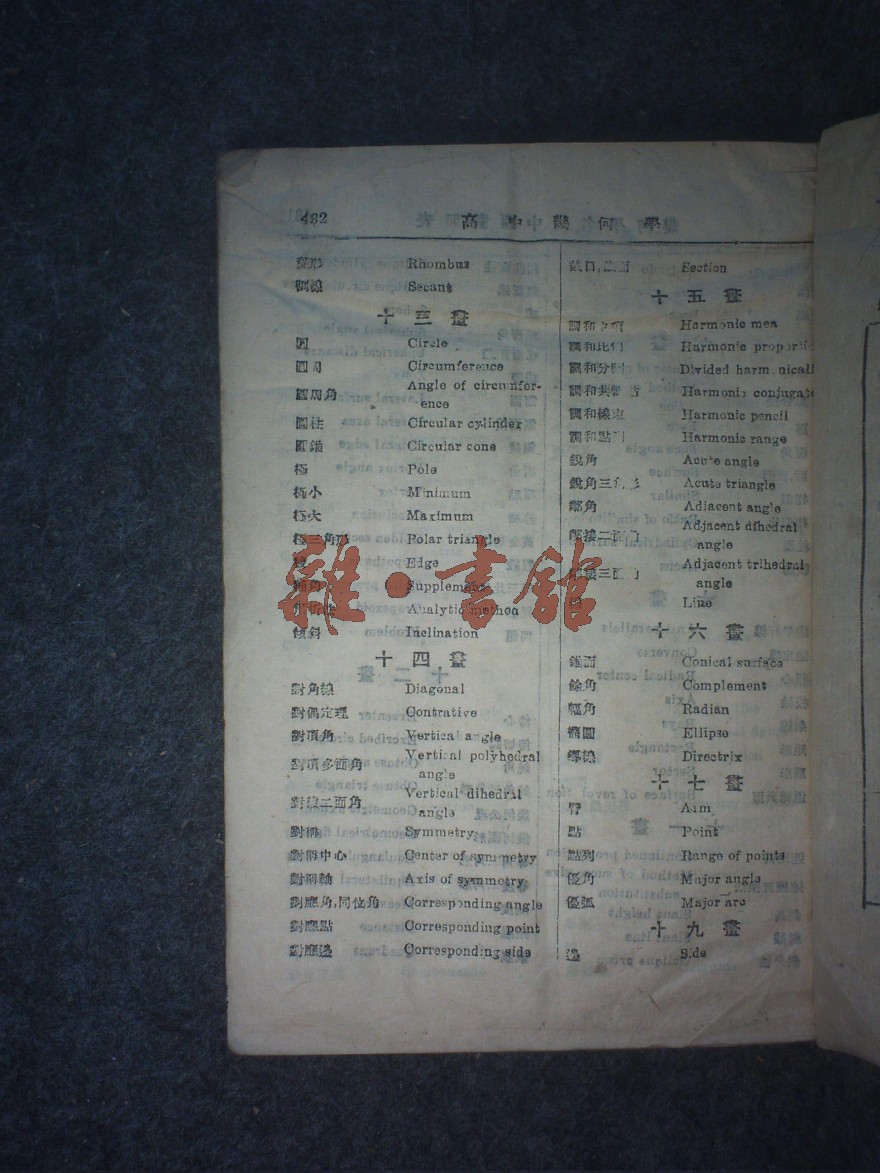 482 高中幾何學
菱形 Rhombus
割線 Secant
十三畫
圓 Circle
圓周 Circumference
圓周角 Angle of circumfer-
ence
圓柱 Circular cylinder
圓錐 Circular cone
極 Pole
極小 Minimum
極大 Maximum
極三角形 Polar triangle
Edge
補角 Supplement
解析法 Analytic method
傾斜 Inclination
十四畫
對角線 Diagonal
對偶定理 Contrative
對頂角 Vertical angle
對頂多面角 Vertical polyhedral
angle
對棱二面角 Vertical dihedral
angle
對稱 Symmetry
對稱中心 Center of symmetry
對稱軸 Axis of symmetry
對應角,同位角 Corresponding angle
對應點 Corresponding point
對應邊 Corresponding side
截口,截面 Section
十五畫
調和中項 Harmonic mea
調和比例 Harmonic proportio
調和分割 Divided harmonicall
調和共軛點 Harmonic conjugate
調和線束 Harmonic pencil
調和點列 Harmonic range
銳角 Acute angle
銳角三角形 Acute triangle
鄰角 Adjacent angle
鄰接二面角 Adjacent dihedral
angle
鄰接三面角 Adjacent trihedral
angle
Line
十六畫
錐面 Conical surface
餘角 Complement
輻角 Radian
橢圓 Ellipse
導線 Directrix
十七畫
臂 Arm
點 Point
點列 Range of points
優角 Major angle
優弧 Major arc
十九畫
邊 Side
雜·書館